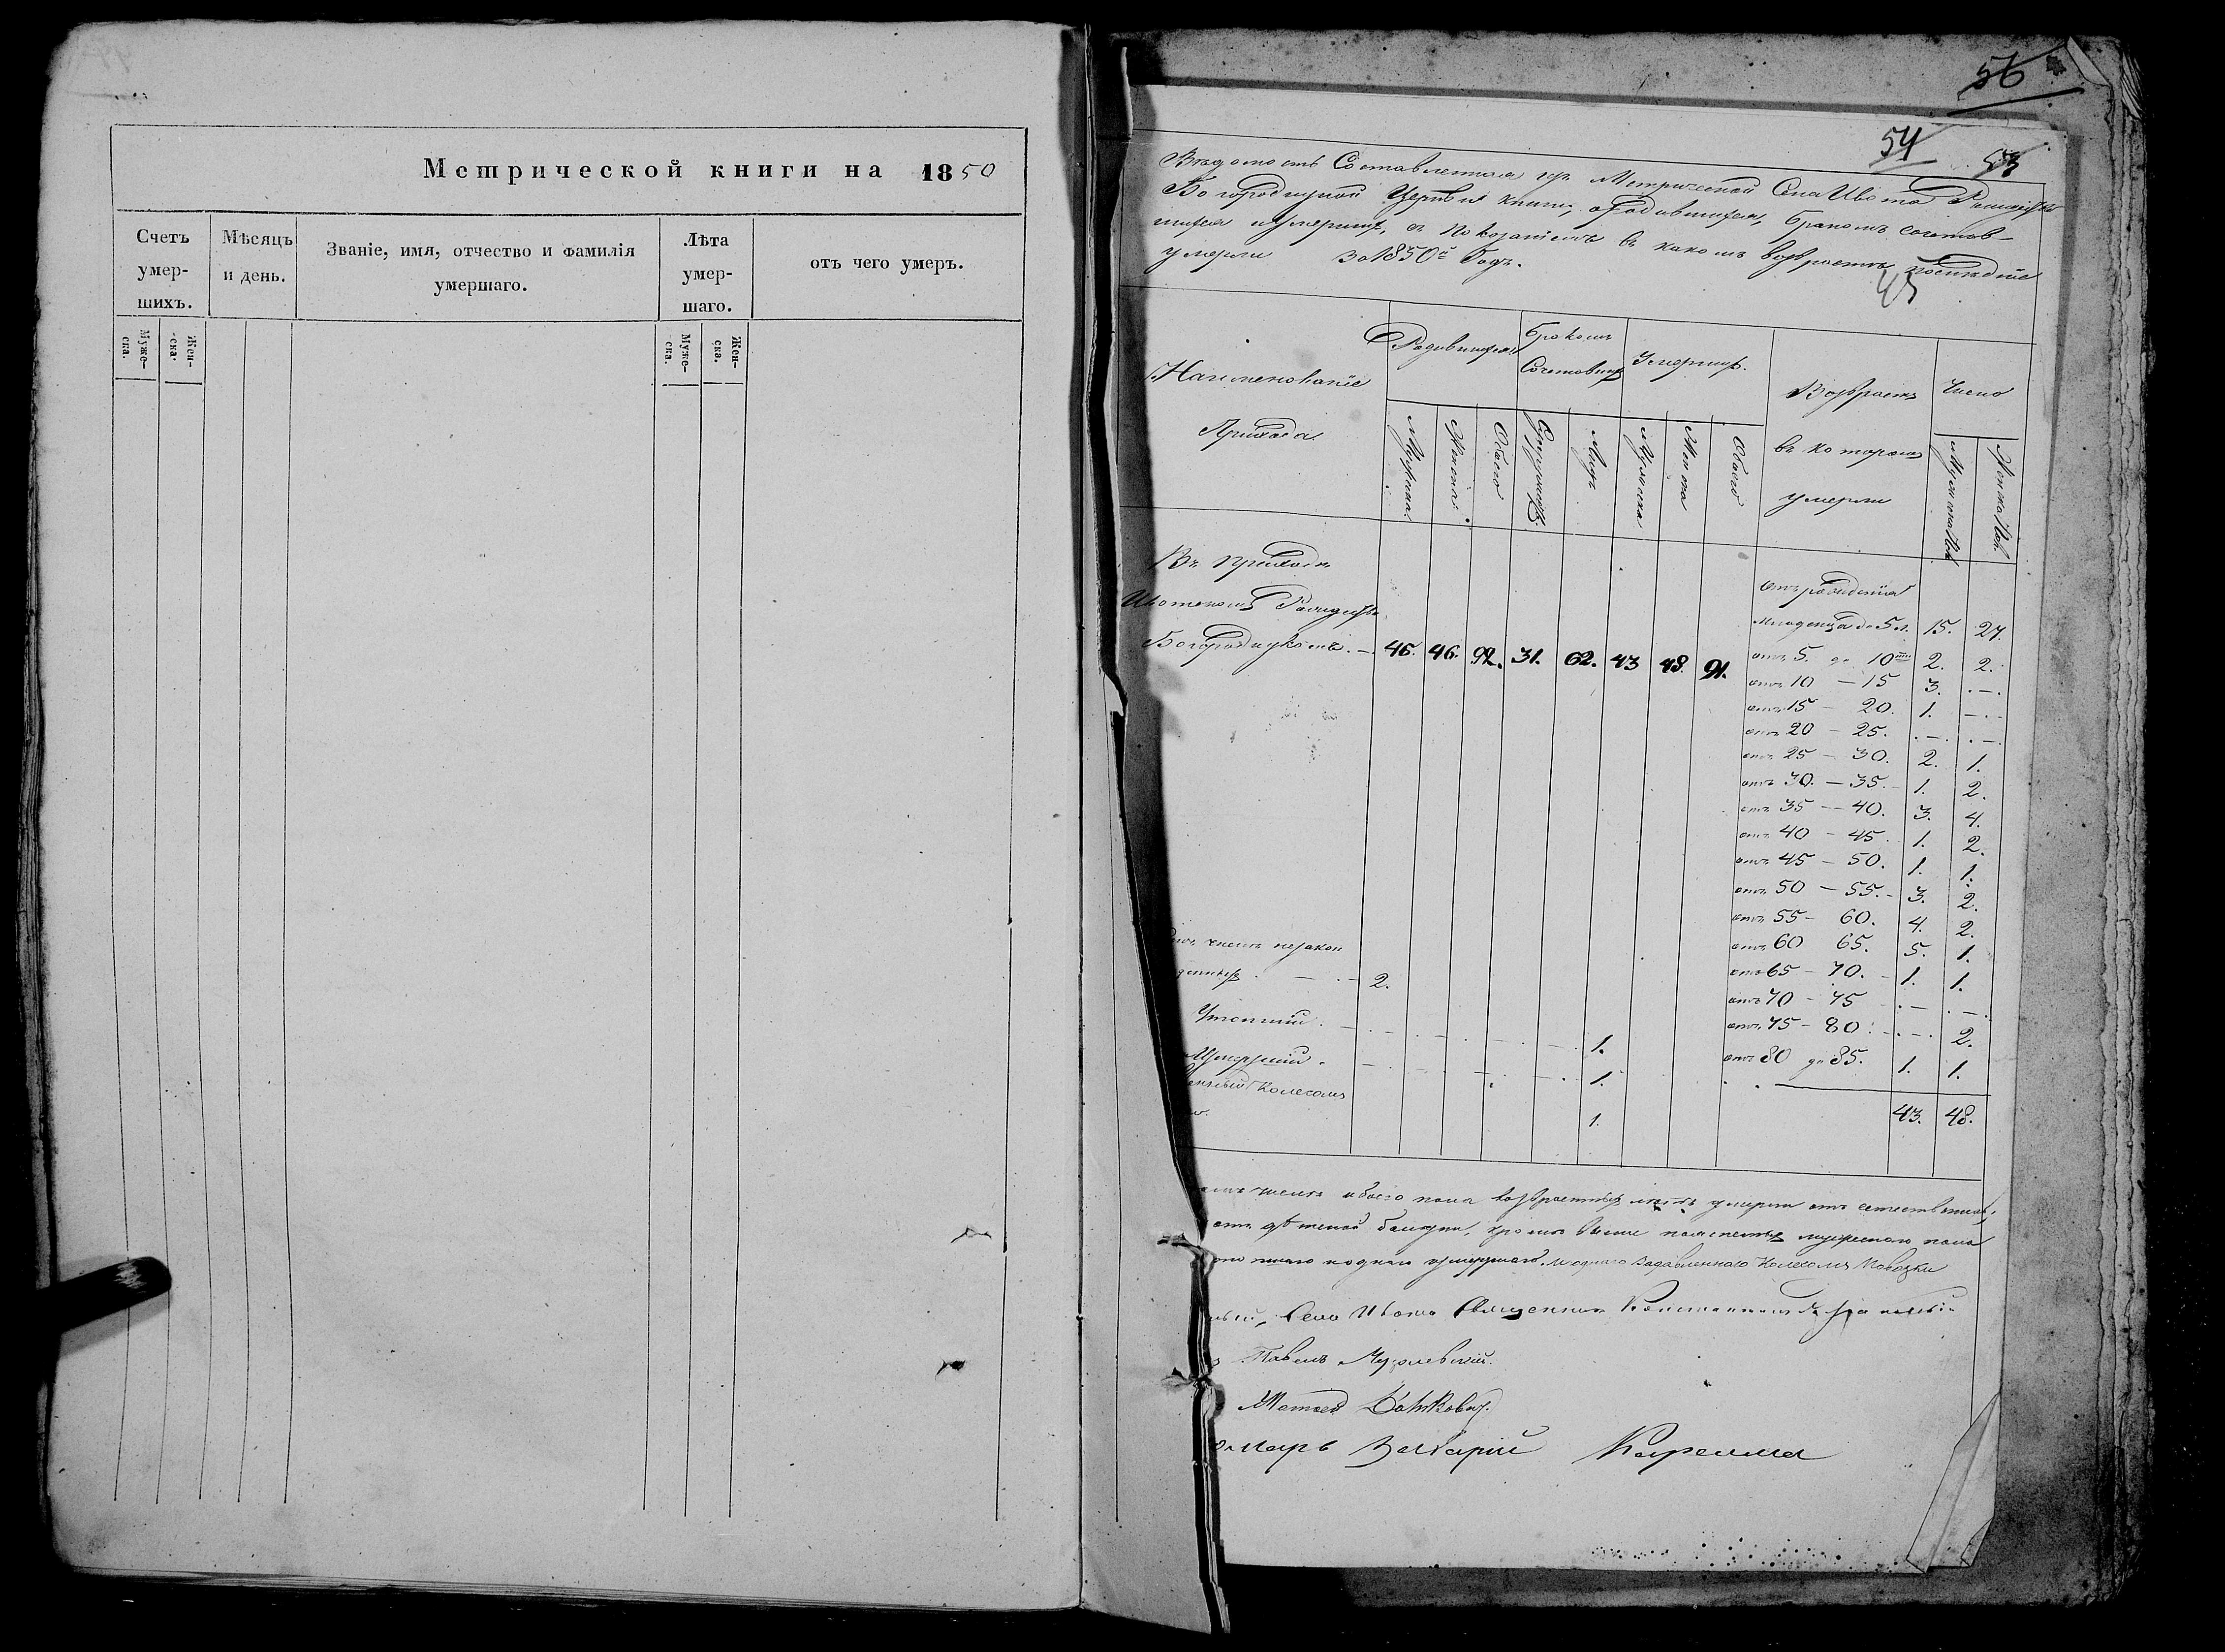 Метрической книги на 1850
Счетъ умершихъ.
Мѣсяцъ и день.
Званіе, имя, отчество и фамилія умершаго.
Лѣта умершаго.
отъ чего умеръ.
Муже-ска.
Жен-ска.
Муже-ска.
Жен-ска.
56
54
53
Вѣдомость Составленная изъ Метрической Села Ивота Рождество
Богородицкой Церкви книги, о родившихся, бракомъ сочетав-
шихся и умершихъ, съ показаніемъ въ какомъ возрастѣ послѣдніе
умерли За 1850й Годъ.
45
Наименованіе
Прихода
Родившихся
Бракомъ
Сочетавших
Умерших.
Возрастъ
въ которомъ
умерли
Число
Мужеска
Женска
Обоего
Супружеств.
Лицъ
Мужеска
Женска
Обоего
Мужеска Пол
Женска Пол.
Въ Приходѣ
Ивотскомъ Рождество
Богородицкомъ. — 46. 46. 92. 31. 62. 43 48. 91.
Отъ рожденія
младенца до 5 л. 15. 27.
отъ 5. до 10ти 2. 2.
отъ 10 — 15 3. . — .
отъ 15 — 20. 1. — . .
отъ 20 — 25. . — . . — .
отъ 25 — 30. 2. 1.
отъ 30. — 35. 1. 2.
отъ 35 — 40. 3. 4.
отъ 40 — 45. 1. 2.
отъ 45 — 50. 1. 1.
отъ 50 — 55. 3. 2.
отъ 55 — 60. 4. 2.
отъ 60 65. 5. 1.
отъ 65 — 70. 1. 1.
отъ 70 — 75 . — . — .
отъ 75 — 80. . — . 2.
отъ 80 до 85. 1. 1.
43. 48.
числѣ незакон
2.
Утопшій. 1.
1.
Колесомъ
1.
числа обоего пола возрастныхъ лѣтъ умерли отъ естественной,
отъ дѣтской болезни, кромѣ выше мужескаго пола
и однаго задавленнаго Колесомъ Повозки
Села Ивота Священникъ Константинъ
Павелъ
Матвей
Захарій